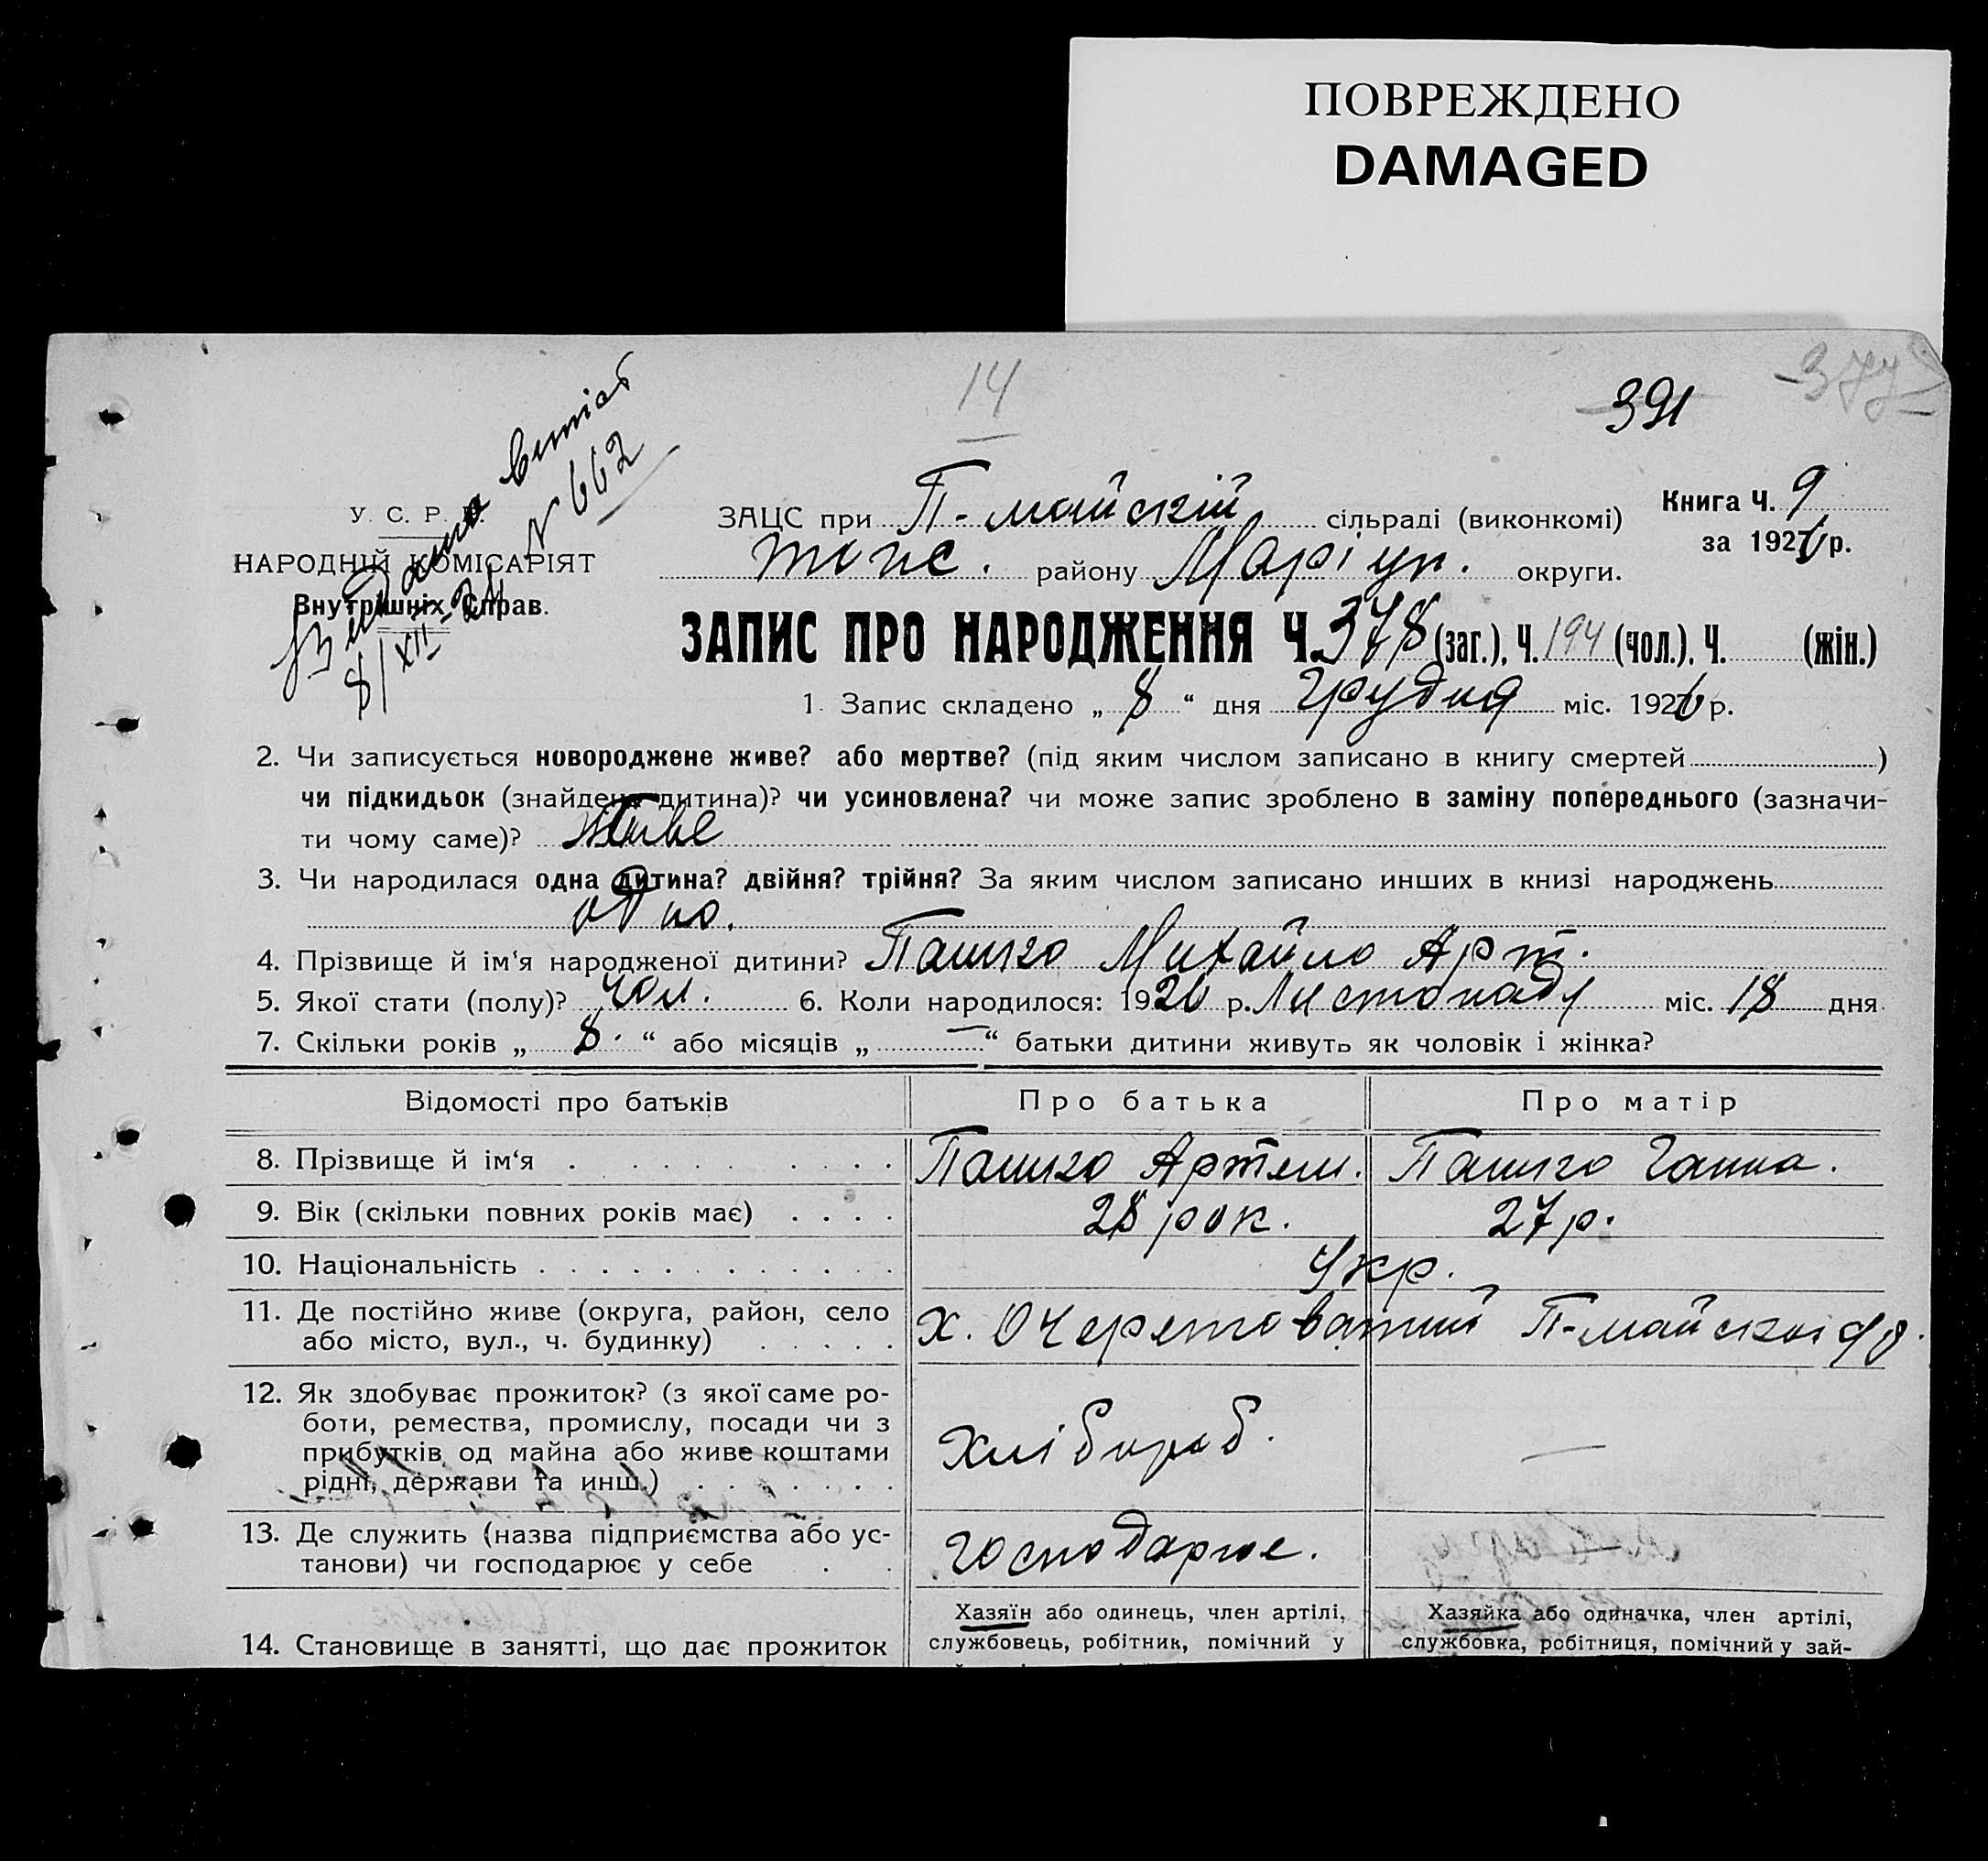 ПОВРЕЖДЕНО
DAMAGED
14
391
377
Видана витяг
N 662
8/XII-26
У. С. Р. Р.
НАРОДНІЙ КОМІСАРІЯТ
Внутрішніх Справ.
ЗАЦС при П-майскій сільраді (виконкомі)
район у Маріуп. округи.
Книга Ч. 9
за 1926 р.
ЗАПИС ПРО НАРОДЖЕННЯ Ч. 378 (заг.), Ч. 194 (чол.), Ч. (жін.)
1. Запис складено „ 8 “ дня Грудня міс. 1926 р.
2. Чи записується новороджене живе? або мертве? (під яким числом записано в книгу смертей )
чи підкидьок (знайдена дитина)? чи усиновлена? чи може запис зроблено в заміну попереднього (зазначи-
ти чому саме)? живе
3. Чи народилася одна дитина? двійня? трійня? За яким числом записано инших в книзі народжень
одно.
4. Прізвище й ім‘я народженої дитини? Пашко Михайло Арт.
5. Якої стати (полу)? чол. 6. Коли народилося: 1926 р. Листопаду міс. 18 дня
7. Скільки років „ 8. “ або місяців „ — “ батьки дитини живуть як чоловік і жінка?
Відомості про батьків Про батька Про матір
8. Прізвище й ім‘я Пашко Артем. Пашко Ганна.
9. Вік (скільки повних років має) 28 рок. 27 р.
10. Національність Укр.
11. Де постійно живе (округа, район, село
або місто, вул., ч. будинку) х. Очеретоватий П-майскої
12. Як здобуває прожиток? (з якої саме ро-
боти, ремества, промислу, посади чи з
прибутків од майна або живе коштами
рідні, держави та инш.) Хлібороб. —
13. Де служить (назва підприємства або ус-
танови) чи господарює у себе Господарює.
14. Становище в занятті, що дає прожиток
Хазяїн або одинець, член артілі,
службовець, робітник, помічний у
Хазяйка або одиначка, член артілі,
службовка, робітниця, помічний у зай-